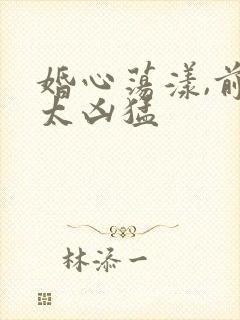 婚心荡漾,前
太凶猛
林添一